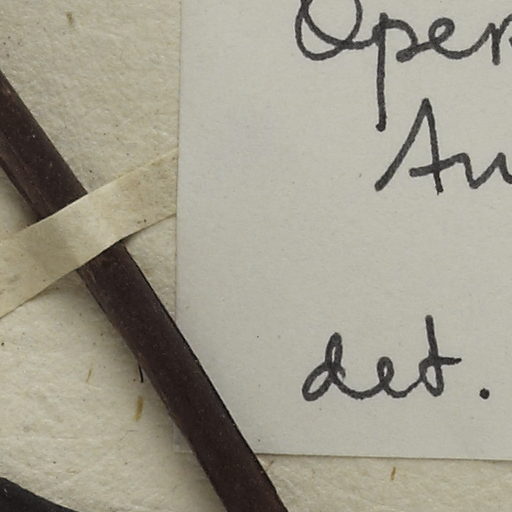 Oper
Au
det.